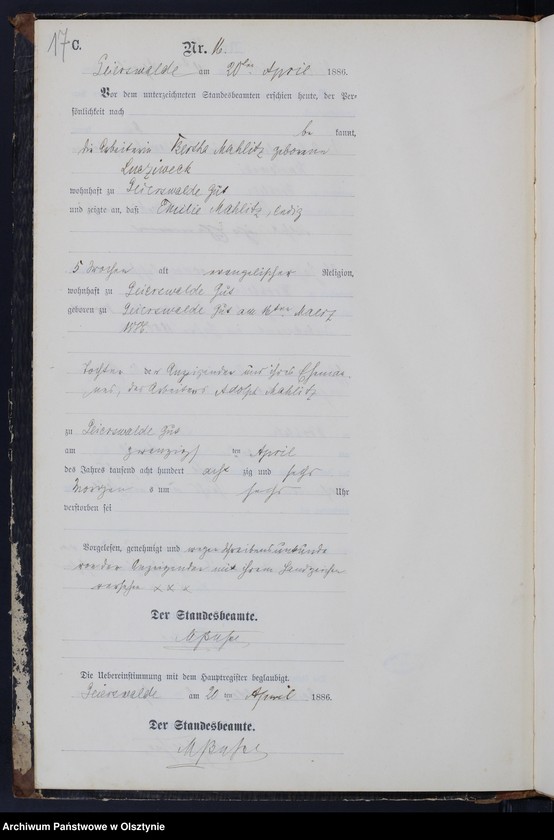 17
C.
Nr. 16.
Geierswalde am 20ten April 1886.
Vor dem unterzeichneten Standesbeamten erschien heute, der Per-
sönlichkeit nach
be kannt,
die Arbeiterin Bertha Mahlitz geborene
wohnhaft zu Geierswalde Gut
und zeigte an, daß Emilie Mahlitz, ledig
5 Wochen alt evangelischer Religion,
wohnhaft zu Geierswalde Gut
geboren zu Geierswalde Gut am 16ten Maerz
1886.
Tochter der Anzeigender und ihres Eheman-
nes, des Arbeiters Adolph Mahlitz
zu Geierswalde Gut
am zwanzigsten April
des Jahres tausend acht hundert acht zig und sechs
Morgen s um sechs Uhr
verstorben sei
Vorgelesen, genehmigt und wegen Schreibensunkunde
von der Anzeigender mit ihrem Handzeichen
versehn x x x
Der Standesbeamte.
Die Uebereinstimmung mit dem Hauptregister beglaubigt.
Geierswalde am 20 ten April 1886.
Der Standesbeamte.
Archiwum Państwowe w Olsztynie